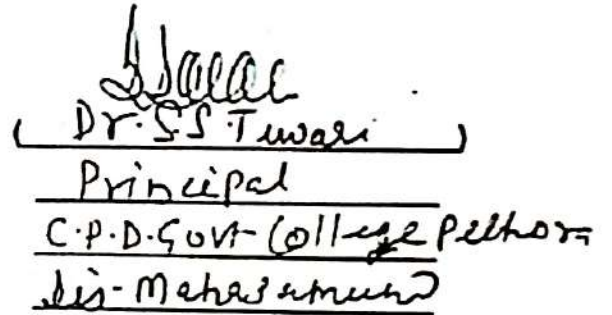 ( Dr. S.S. Tiwari )
Principal
C.P.D. Govt College Pithora
Dis- Mahasamund